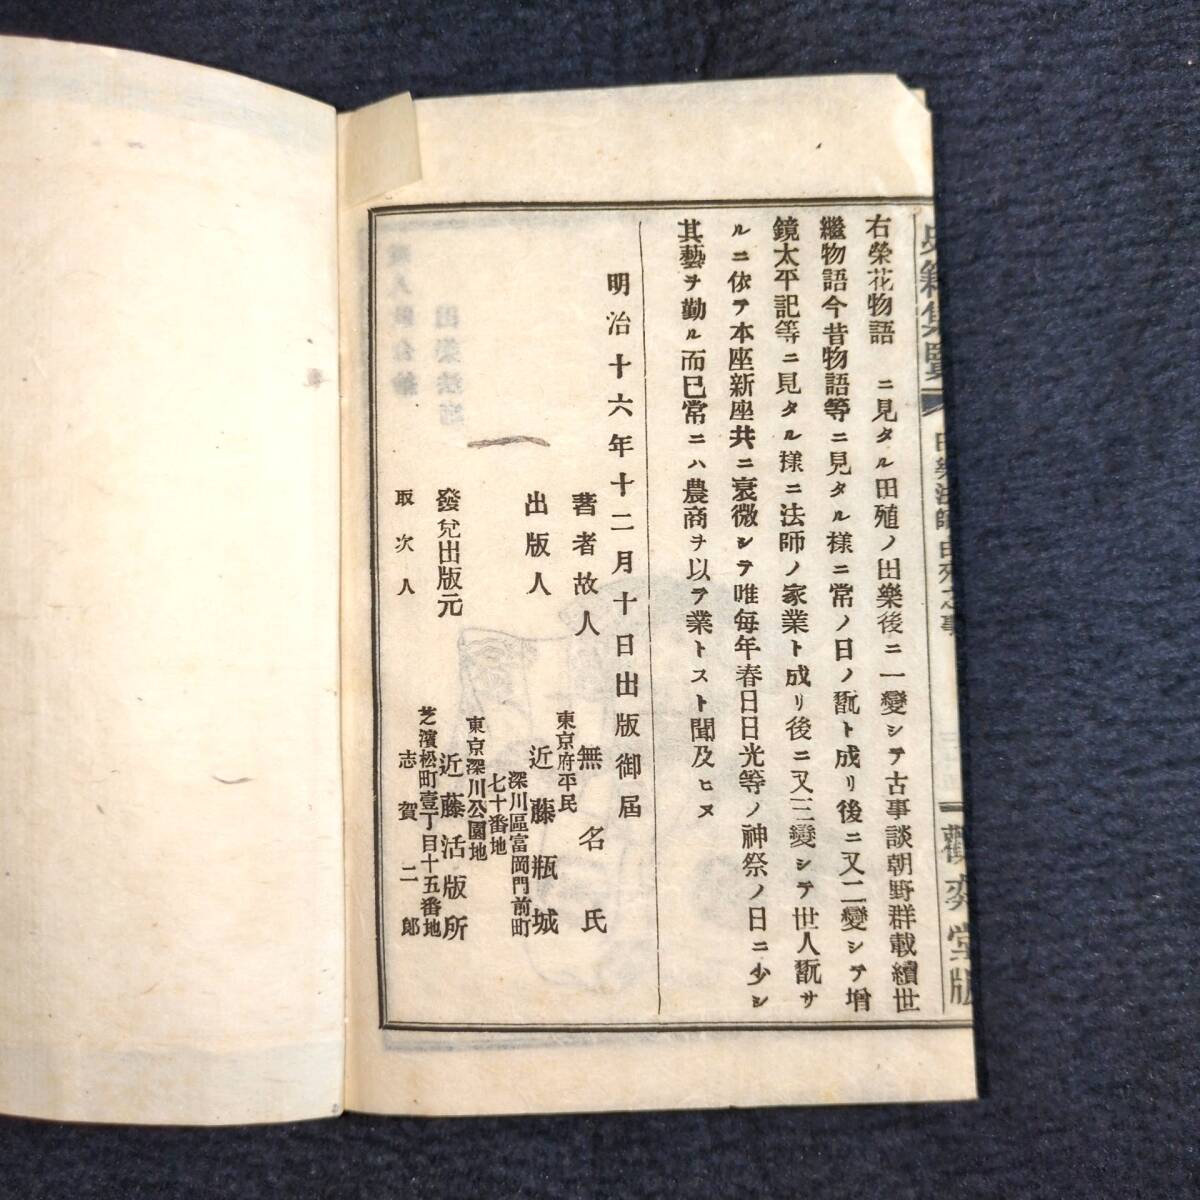 史籍集覽
田樂法師由來之事
觀奕堂版
右榮花物語　ニ見タル田殖ノ田樂後ニ一變シテ古事談朝野群載續世
繼物語今昔物語等ニ見タル樣ニ常ノ日ノ翫ト成リ後ニ又二變シテ增
鏡太平記等ニ見タル樣ニ法師ノ家業ト成リ後ニ又三變シテ世人翫サ
ルニ依テ本座新座共ニ衰微シテ唯每年春日日光等ノ神祭ノ日ニ少シ
其藝ヲ勤ル而已常ニハ農商ヲ以テ業トスト聞及ヒヌ
明治十六年十二月十日出版御屆
著者故人　無名氏
東京府平民
出版人　近藤瓶城
深川區富岡門前町
七十番地
東京深川公園地
發兌出版元　近藤活版所
芝濱松町壹丁目十五番地
取次人　志賀二郎